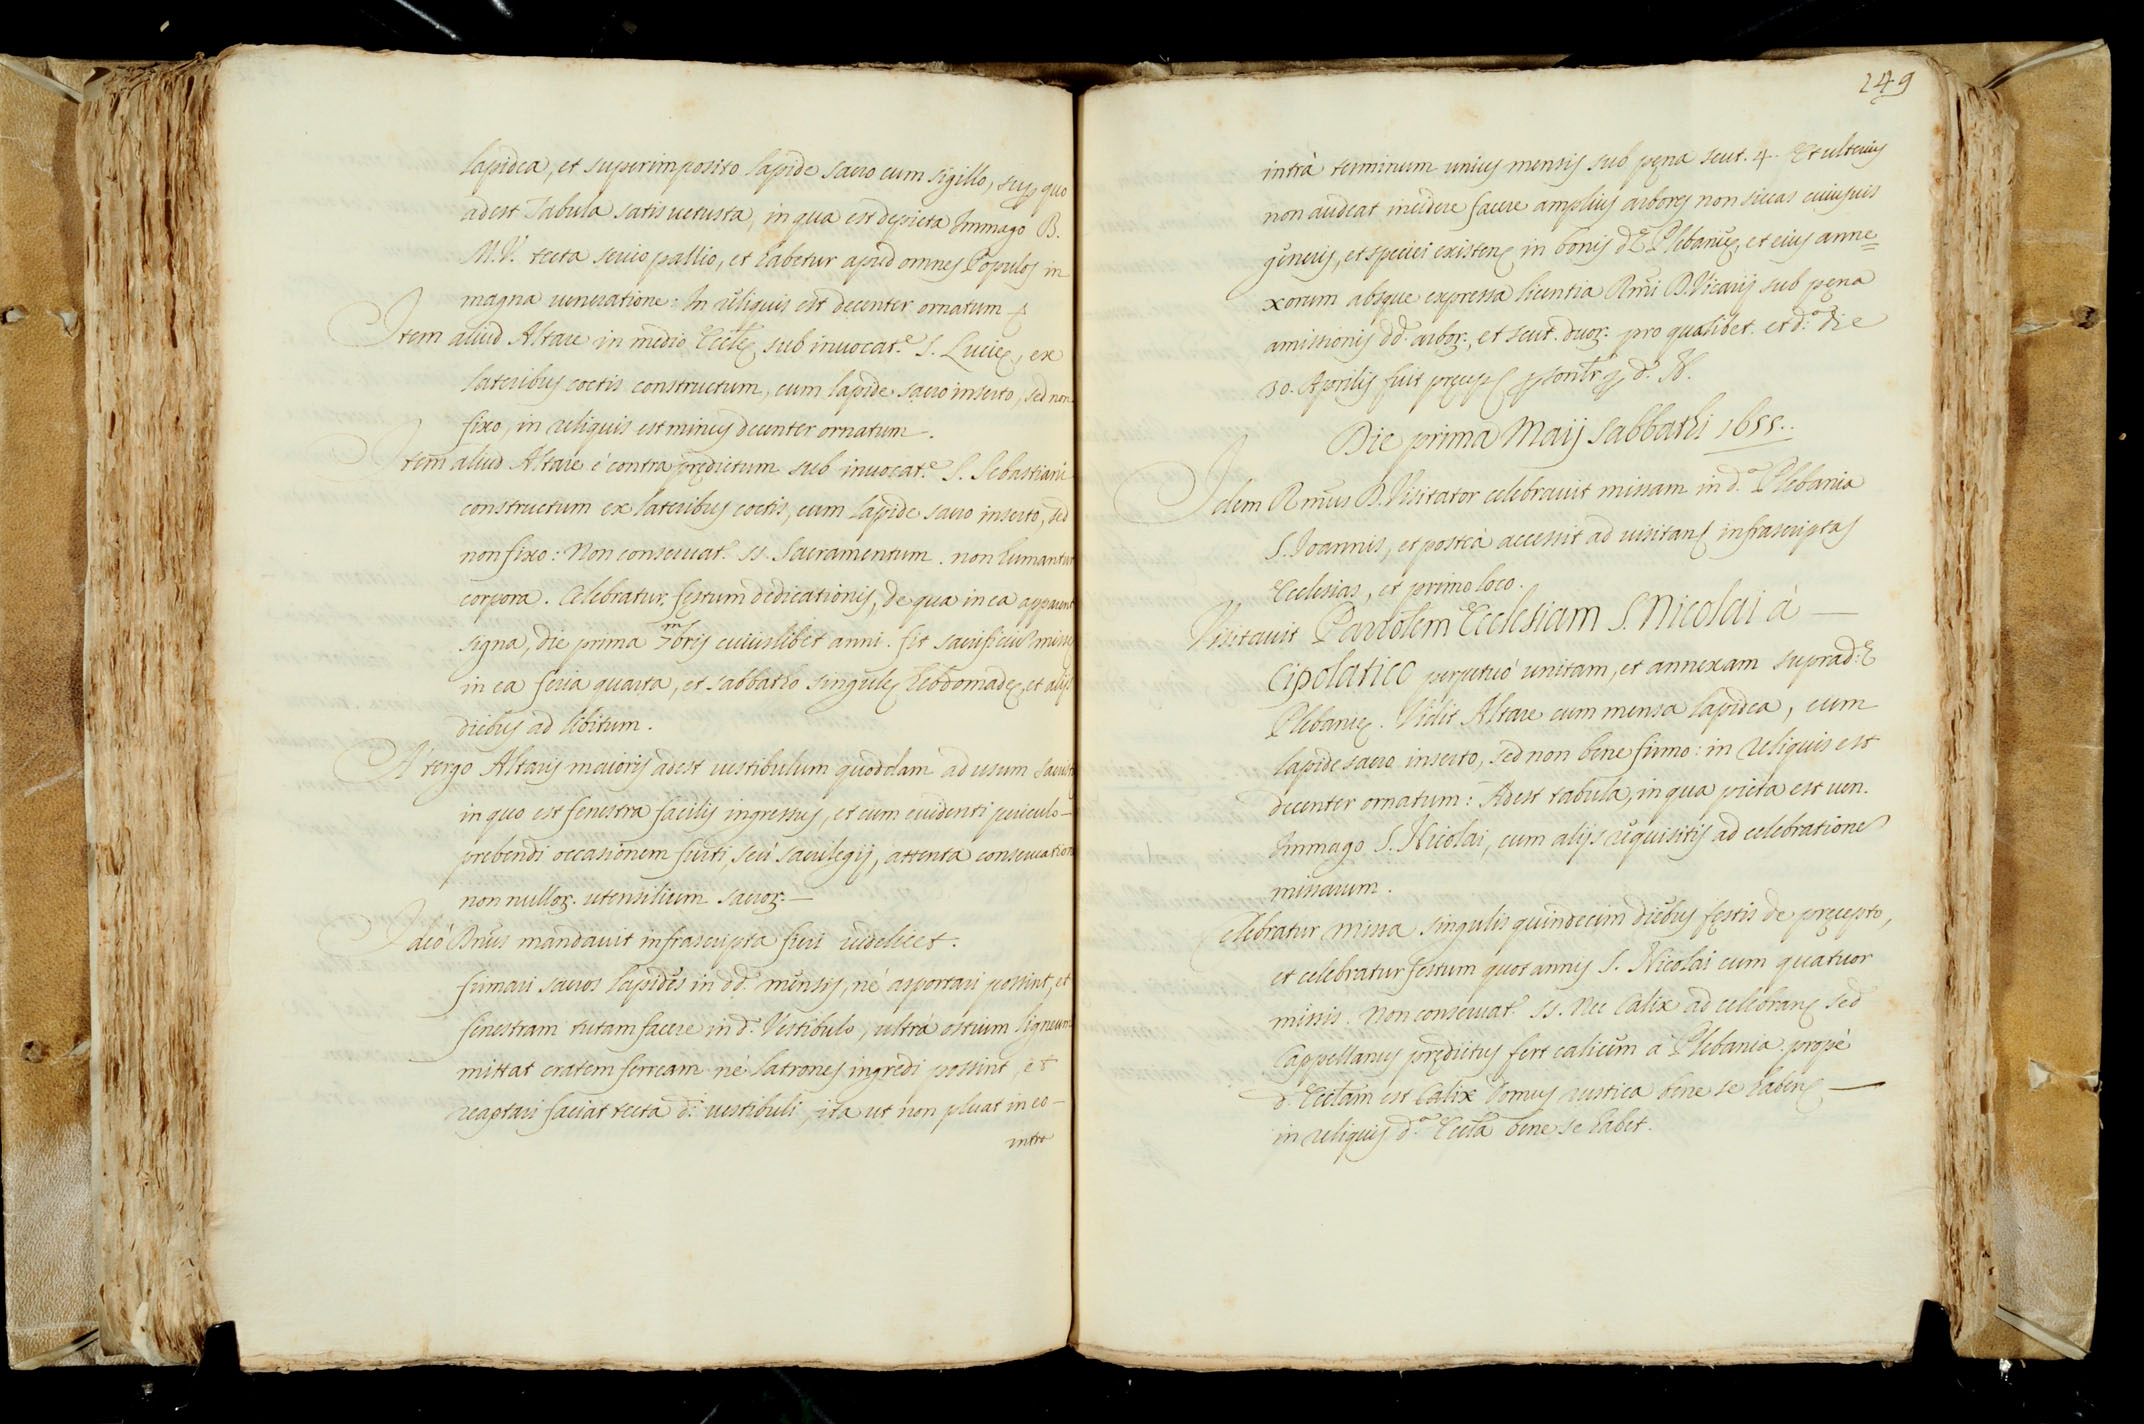 lapidea, et superimposito lapide sacro cum sigillo, sup quo
adest Tabula satis uetusta, in qua est depicta Immago B.
M. V. tecta serico pallio, et habetur apud omnes Populos in
magna ueneratione: In reliquis est decenter ornatum
Item aliud Altare in medio Eccle sub inuocat.e S. Lucie, ex
lateribus coctis constructum, cum lapide sacro inserto, sed non
fixo, in reliquis est minus decenter ornatum.
Item aliud Altare è contra prędictum sub inuocat.e S. Sebastiani
constructum ex lateribus coctis, cum lapide sacro inserto, sed
non fixo: Non conseruat.r SS. Sacramentum. non humantur
corpora. Celebratur festum dedicationis, de qua in ea apparent
signa, die prima 7mbris cuiuslibet anni. fit sacrificium missę
in ea feria quarta, et sabbatho singulę hebdomadę, et alijs
diebus ad libitum.
A' tergo Altaris maioris adest uestibulum quoddam ad usum
in quo est fenestra facilis ingressus, et cum euidenti periculo
prebendi occasionem furti, seù sacrilegij, attenta conseruation
non nullor. utensilium sacror.
Ideò Rmus mandauit infrascripta fieri uidelicet.
firmari sacros lapides in dd. mensis, nè asportari possint, et
fenestram tutam facere in d. Vestibulo, ultrà ostium ligneum
mittat cratem ferream nè latrones ingredi possint, et
reaptari faciat tecta d.i uestibuli, ita ut non pluat in eo
intra
249
intrà terminum unius mensis sub pęna scut. 4. Et ulterius
non audeat incidere facere amplius arbores non siccas cuiusuis
generis, et speciei existen in bonis d.e Plebanię, et eius anne=
xorum absque expressa licentia Rmi D. Vicarij sub pęna
amissionis dd. arbor., et scut. duor. pro qualibet. et d.a die
30. Aprilis fuit
Die prima Maij Sabbathi 1655.
Idem Rmus D. Visitator celebrauit missam in d.a Plebania
S. Ioannis, et posteà accessit ad uisitan infrascriptas
Ecclesias, et primo loco.
Visitauit Parrolem Ecclesiam S. Nicolai à
Cipolatico perpetuò unitam, et annexam suprad.e
Plebanię. Vidit Altare cum mensa lapidea, cum
lapide sacro inserto, sed non bene firmo: in reliquis est
decenter ornatum: Adest tabula, in qua picta est uen.
Immago S. Nicolai, cum alijs requisitis ad celebratione
missarum.
Celebratur missa singulis quindecim diebus festis de pręcepto,
et celebratur festum quot annis S. Nicolai cum quatuor
missis. Non conseruat.r SS. Nec Calix ad celebran sed
Cappellanus prędictus fert calicem a Plebania. propè
d. Ecclam est Calix domus rustica bene se haben
in reliquis d.a Eccla bene se habet.